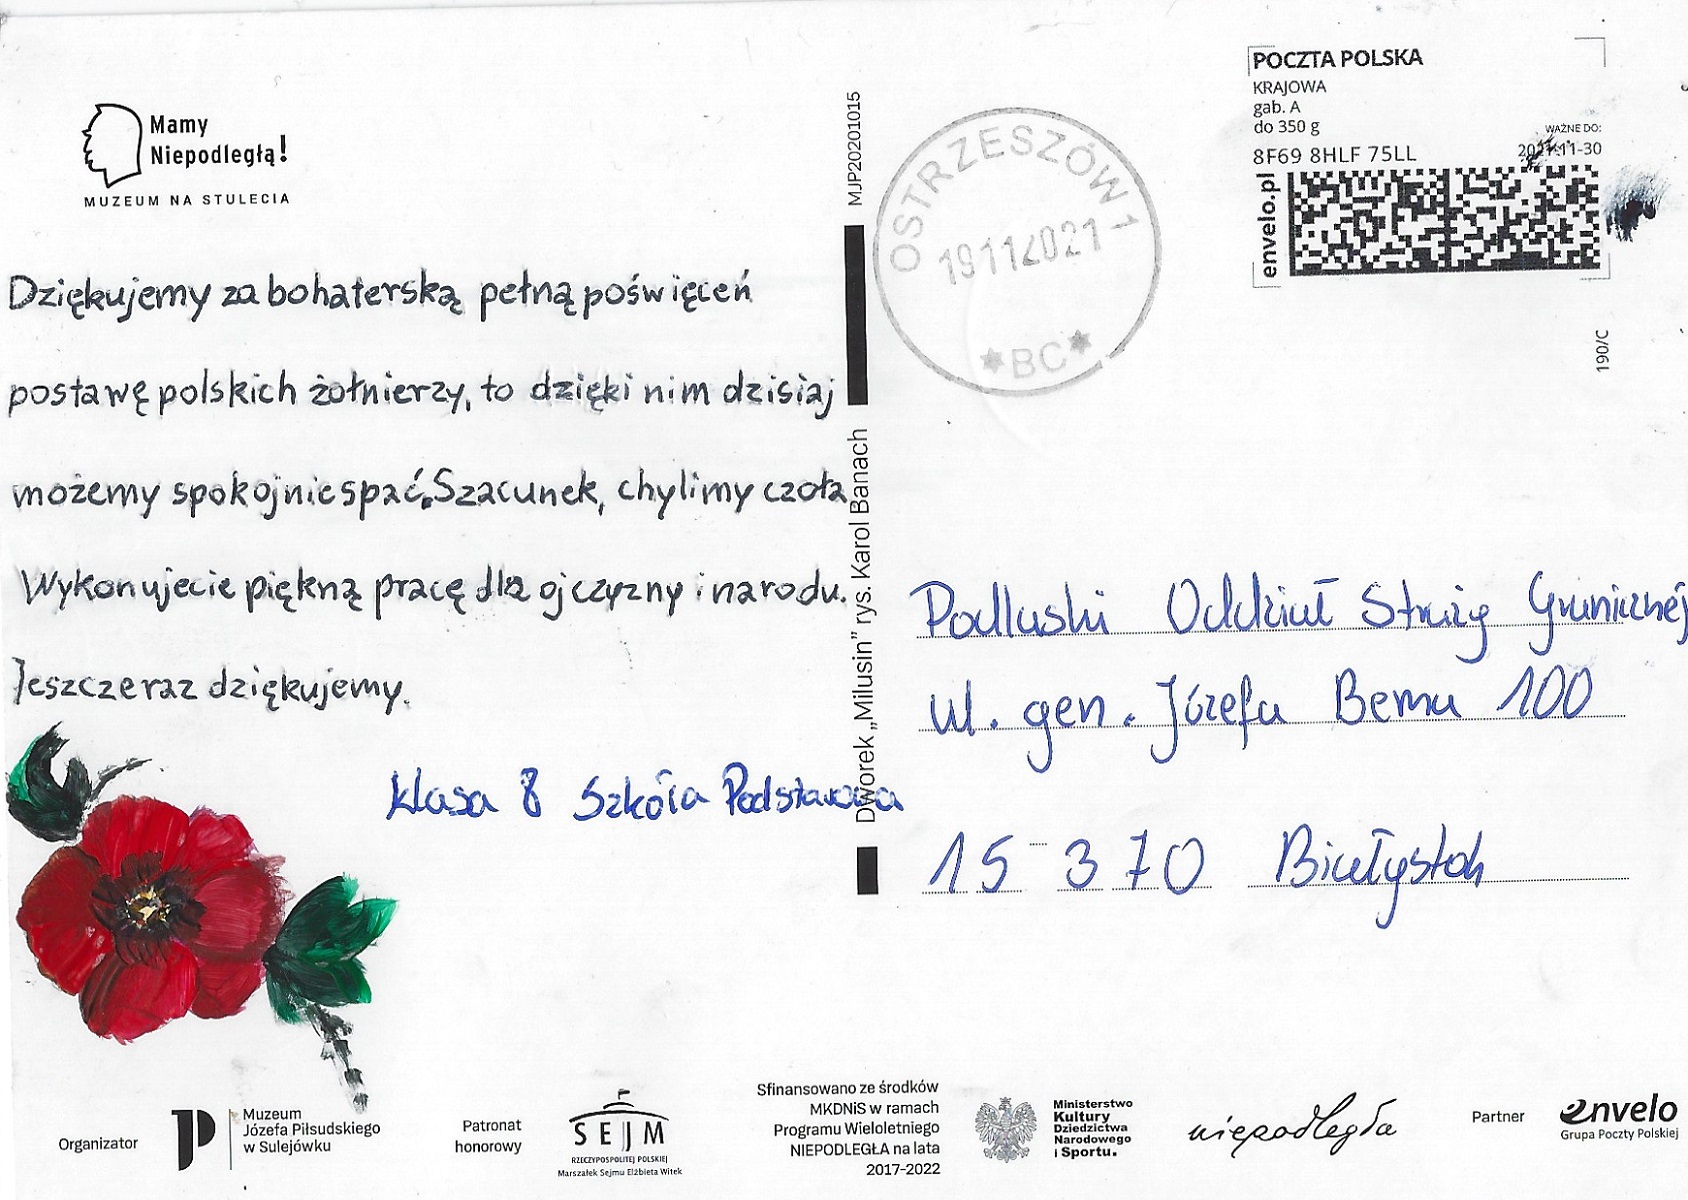 Mamy
Niepodległą!
MUZEUM NA STULECIA
Dziękujemy za bohaterską pełną poświęceń
postawę polskich żołnierzy, to dzięki nim dzisiaj
możemy spokojnie spać. Szacunek, chylimy czoła
Wykonujecie piękną pracę dla ojczyzny i narodu.
Jeszcze raz dziękujemy.
klasa 8 Szkóła Podstawowa
MJP20201015
Dworek „Milusin” rys. Karol Banach
OSTRZESZÓW 1
19112021
*BC*
POCZTA POLSKA
KRAJOWA
gab. A
do 350 g
WAŻNE DO:
8F69 8HLF 75LL 2021-11-30
envelo.pl
190/C
Podlaski Oddział Straży Granicznej
ul. gen. Józefa Bema 100
15 370 Białystok
Organizator
Muzeum
Józefa Piłsudskiego
w Sulejówku
Patronat
honorowy
SEJM
RZECZYPOSPOLITEJ POLSKIEJ
Marszałek Sejmu Elżbieta Witek
Sfinansowano ze środków
MKDNiS w ramach
Programu Wieloletniego
NIEPODLEGŁA na lata
2017-2022
Ministerstwo
Kultury
Dziedzictwa
Narodowego
i Sportu.
niepodległa
Partner
envelo
Grupa Poczty Polskiej